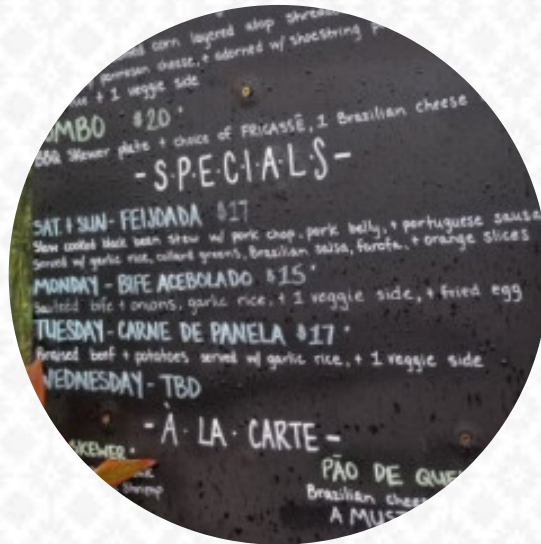 corn layered atop
parmesan cheese, + adorned w/ shoestring
+ 1 veggie side
OMBO $20
BBQ Skewer plate + choice of FRICASSĒ, 1 Brazilian cheese
-S·P·E·C·I·A·L·S-
SAT + SUN - FEIJOADA $17
Slow cooked black bean stew w/ pork chop, pork belly, + portuguese sausa
Served w/ garlic rice, collard greens, Brazilian salsa, farofa, + orange slices
MONDAY - BIFE ACEBOLADO $15
Sautéed bife + onions, garlic rice, + 1 veggie side, + fried egg
TUESDAY - CARNE DE PANELA $17
Braised beef + potatoes served w/ garlic rice, + 1 veggie side
WEDNESDAY - TBD
- À · LA · CARTE -
SKEWER
Shrimp
PÃO DE QUE
Brazilian chee
A MUST